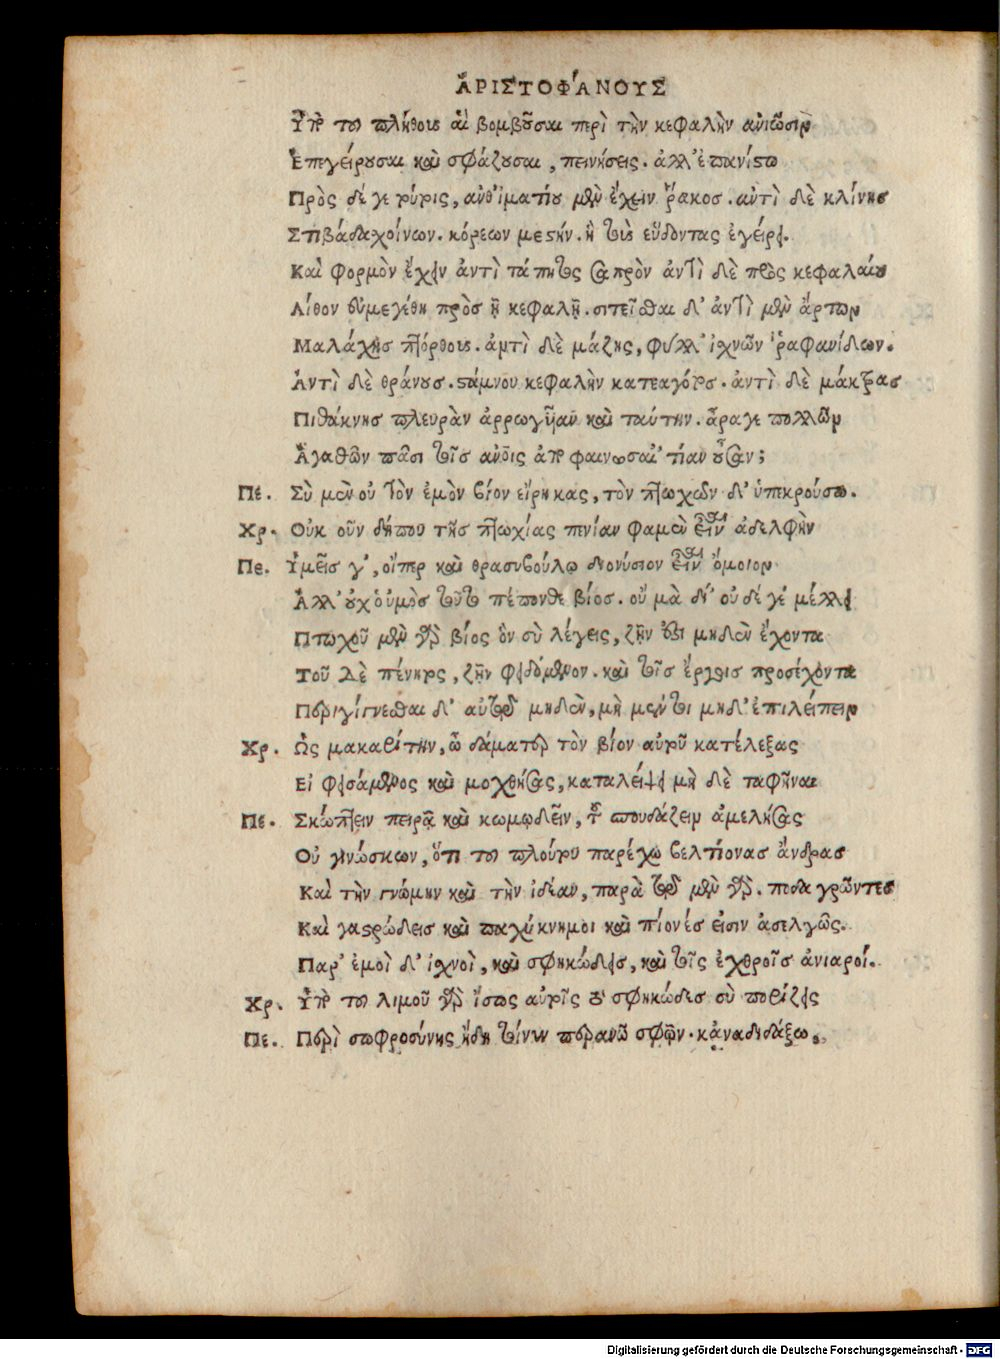 ἈΡΙΣΤΟΦΆΝΟΥΣ
Ὑπὸ τοῦ πλήθους αἳ βομβοῦσαι περὶ τὴν κεφαλὴν ἀνιῶσιν
Ἐπεγείρουσαι καὶ φράζουσαι, πεινήσεις. ἀλλ' ἐπανίστω
Πρὸς δέ γε τούτοις, ἀνθ' ἱματίου μὲν ἔχειν ῥάκος. ἀντὶ δὲ κλίνης
Στιβάδα χοίνων. κόρεων μεστήν. ἣ τοὺς εὕδοντας ἐγείρει.
Καὶ φορμὸν ἔχειν ἀντὶ τάπητος σαπρὸν ἀντὶ δὲ προς κεφαλαίου
Λίθον εὐμεγέθη πρὸς τῇ κεφαλῇ. σιτεῖσθαι δ' ἀντὶ μὲν ἄρτων
Μαλάχης πτόρθους. ἀντὶ δὲ μάζης, φύλλ' ἰχνῶν ῥαφανίδων.
Ἀντὶ δὲ θράνους. στάμνου κεφαλὴν κατεαγότος. ἀντὶ δὲ μάκτρας
Πιθάκνης πλευρὰν ἐρρωγυῖαν καὶ ταύτην. ἆραγε πολλῶν
Ἀγαθῶν πᾶσι τοῖς ἀνοις ἀποφαίνω σαἴτιαν οὖσαν;
Πέ. Σὺ μὲν οὐ τὸν ἐμὸν βίον εἴρηκας, τὸν πτωχῶν δ' ὑπεκρούσω.
Χρ. Οὐκ οὖν δήπου τῆς πτωχίας πενίαν φαμὲν εἶναι ἀδελφὴν
Πε. Ὑμεῖς γ', οἵπερ καὶ θρασυβούλῳ διονύσιον εἶναι ὅμοιον
Ἀλλ' οὐχ ὁ ὑμὸς τοῦτο πέπονθε βίος. οὔ μὰ δί' οὐδέ γέ μέλλει
Πτωχοῦ μὲν γὰρ βίος ὃν σὺ λέγεις, ζῆν ἐστι μηδὲν ἔχοντα
Τοῦ δὲ πένητος, ζῆν φειδόμενον. καὶ τοῖς ἔργοις προσέχοντα
Περιγίγνεσθαι δ' αὐτῷ μηδὲν, μὴ μέντοι μηδ' ἐπιλείπειν
Χρ. Ὡς μακαρίτην, ὦ δάματερ τὸν βίον αὐτοῦ κατέλεξας
Εἰ φεισάμενος καὶ μοχθήσας, καταλείψει μὴ δὲ ταφῆναι
Πε. Σκώπτειν πειρᾷ καὶ κωμῳδεῖν, τοῦ σπουδάζειν ἀμελήσας
Οὐ γινώσκων, ὅτι τοῦ πλούτου παρέχω βελτίονας ἄνδρας
Καὶ τὴν γνώμην καὶ τὴν ἰδέαν, παρὰ τῷ μὲν γὰρ. ποδαγρῶντες
Καὶ γαστρώδεις καὶ παχύκνημοι καὶ πίονές εἰσιν ἀσελγῶς.
Παρ' ἐμοὶ δ' ἰχνοὶ, καὶ σφηκώδεις, καὶ τοῖς ἐχθροῖς ἀνιαροί.
Χρ. Ὑπὸ τοῦ λιμοῦ γὰρ ἴσως αὐτοῖς τὸ σφηκῶδες σὺ πορίζεις
Πε. Περὶ σωφροσύνης ἤδη τοίνυν περανῶ σφῷν. κἀναδιδάξω,
Digitalisierung gefördert durch die Deutsche Forschungsgemeinschaft - DFG